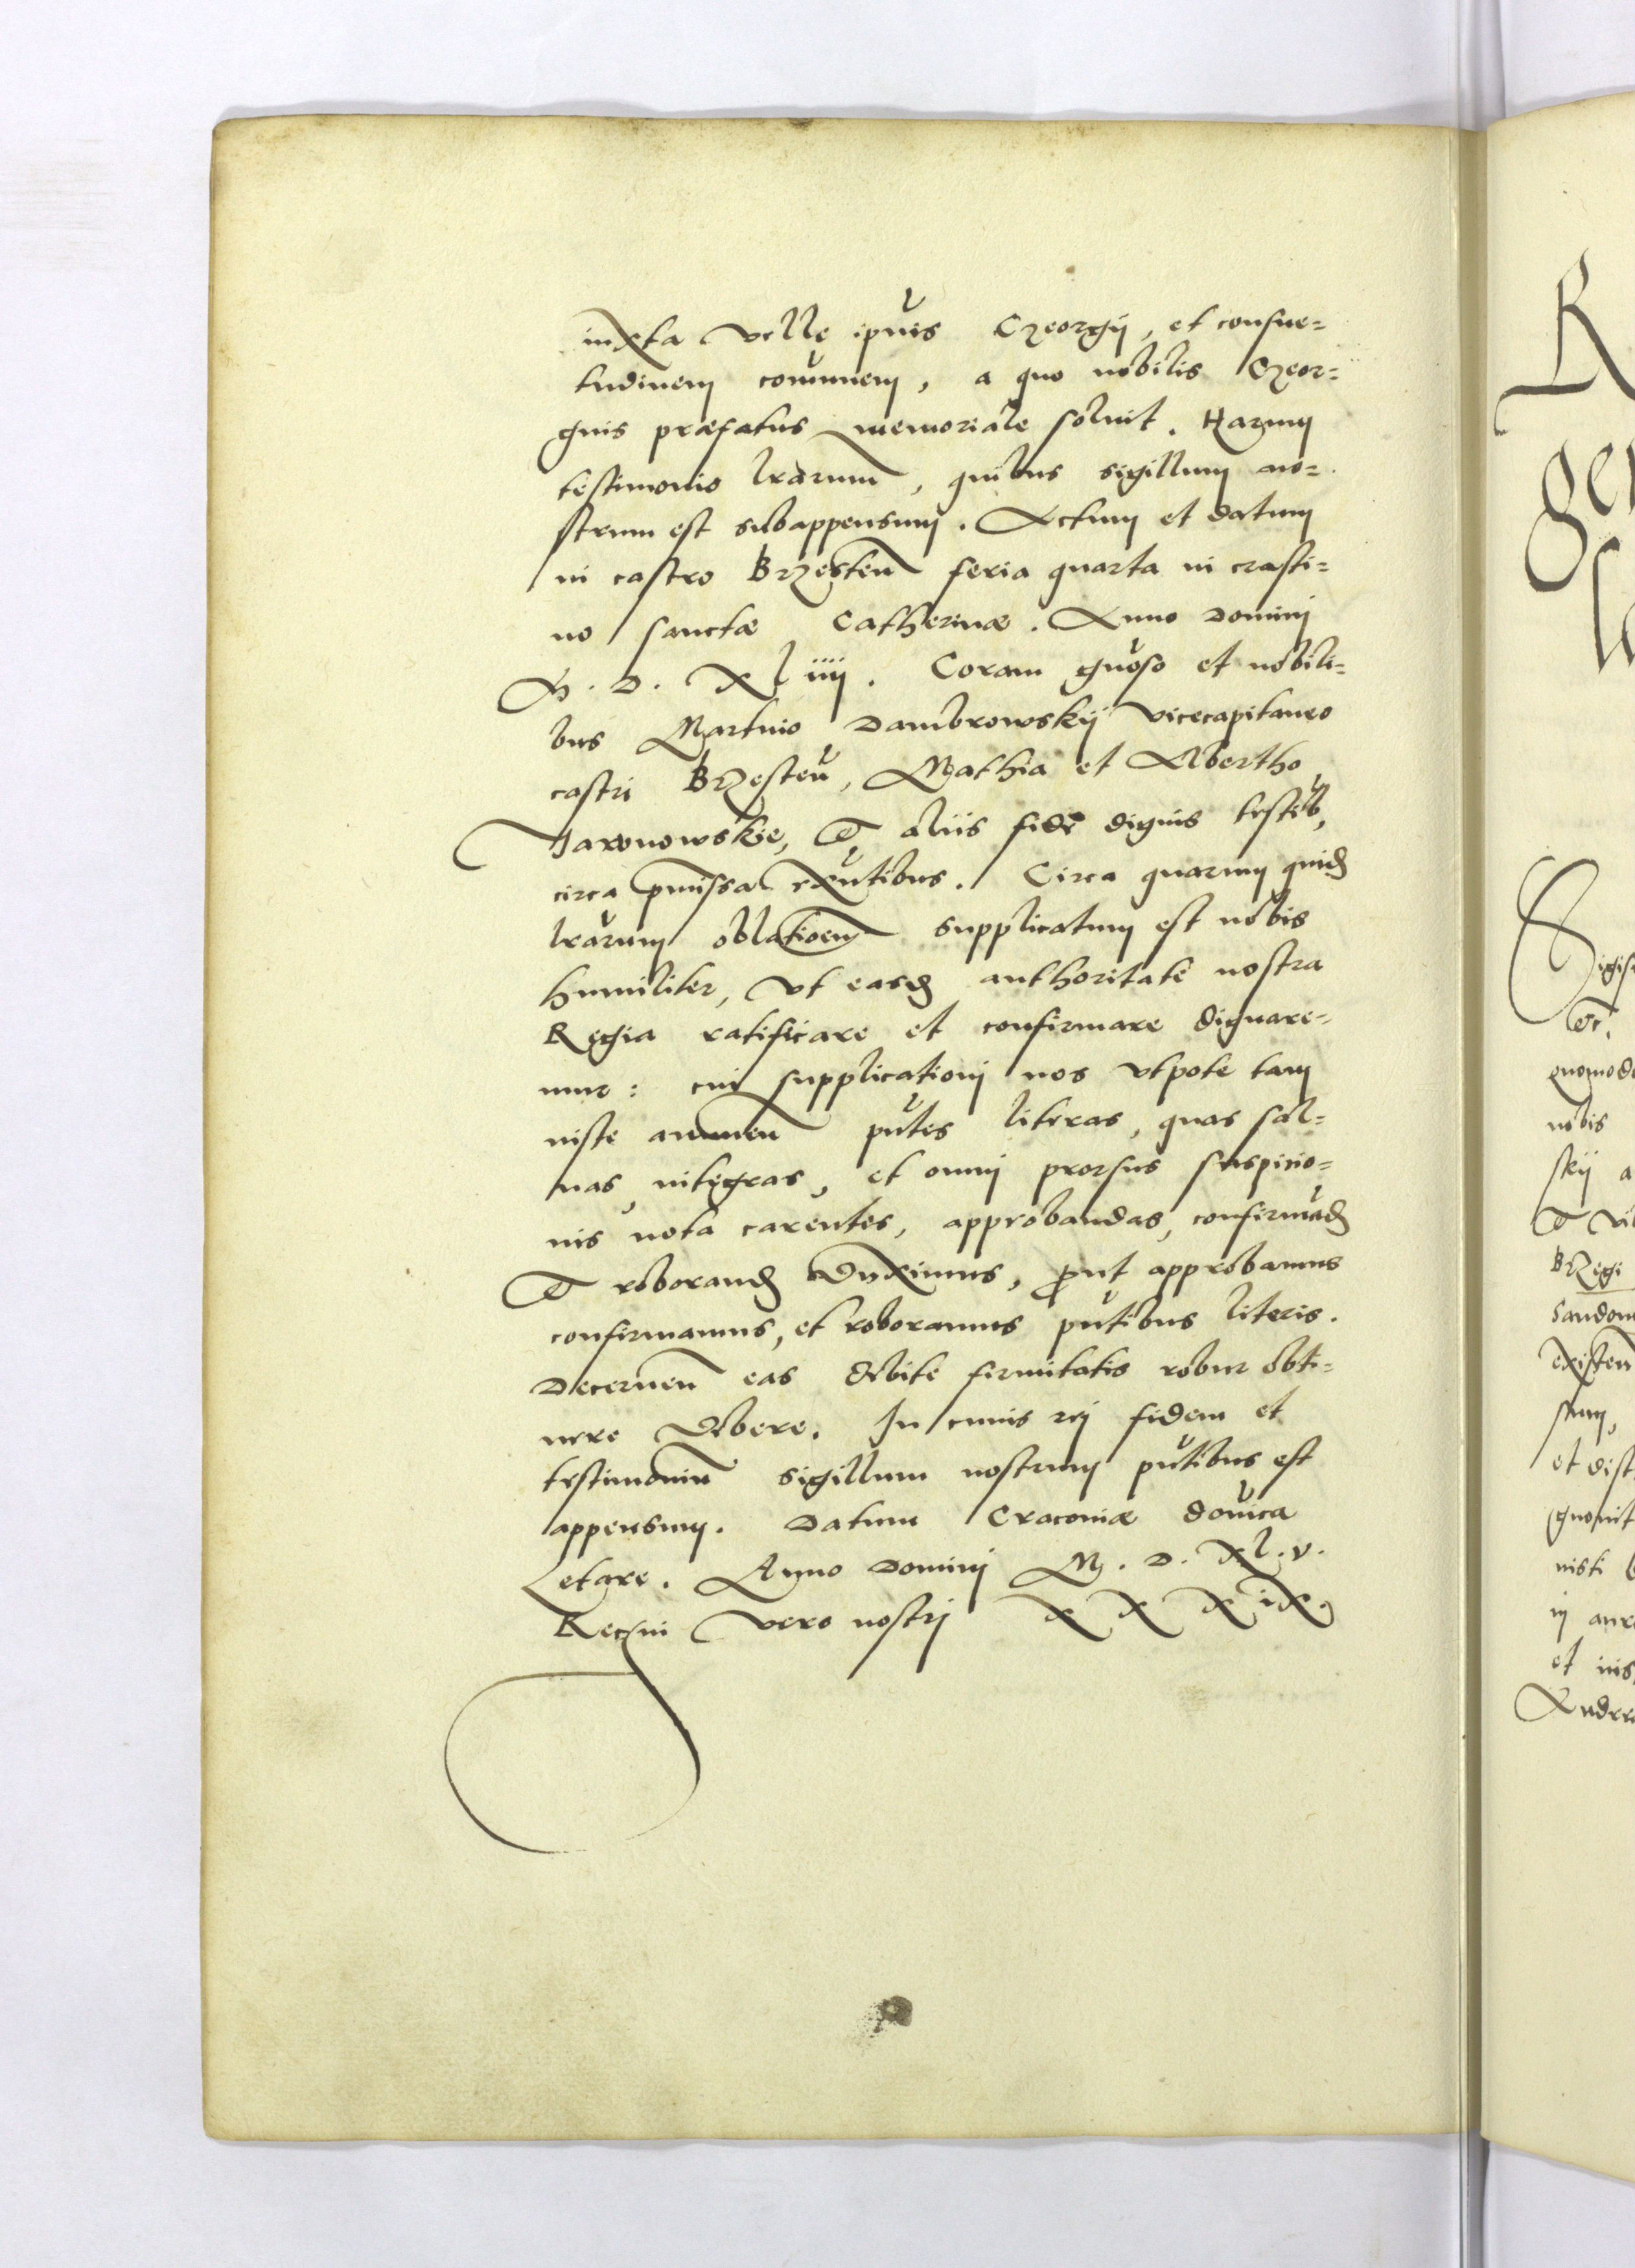 iuxta velle ipuis Czeorgij, et consue=
tudinem comunem, a quo nobilis Czeor=
gius præfatus memoriale soluit. Harum
testimonio lrarum, quibus sigillum no=
strum est subappensum. Actum et datum
in castro Brzesten feria quarta in crasti=
no sanctæ Catherinæ. Anno Domini
M. D. Xl iiij. Coram gnoso et nobili=
bus Martino Dambrowskij vicecapitaneo
castri Brzesten, Mathia et Albertho
Jaronowskie, & aliis fide dignis testib,
circa pmissa exntibus. Circa quarum quid
lrarum oblationem supplicatum est nobis
humiliter, vt easd authoritate nostra
Regia ratificare et confirmare dignare=
mur: cui supplicationi nos vtpote tam
iuste annuen pntes literas, quas sal=
uas, integras, et omni prorsus suspicio=
nis nota carentes, approbandas, confirmad
& roborand duximus, prout approbamus
confirmamus, et roboramus pntibus literis.
Decernen eas debite firmitatis robur obti=
nere debere. In cuius rej fidem et
testimoniu sigillum nostrum pntibus est
appensum. Datum Cracoviæ donica
Letare. Anno Domini M. D. Xl. v.
Regni vero nostrj X X X iX.
R
ger
Sigis
&c.
quomodo
nobis
skij a
Brzegi
Sandom
existen
et dist
et
Andre